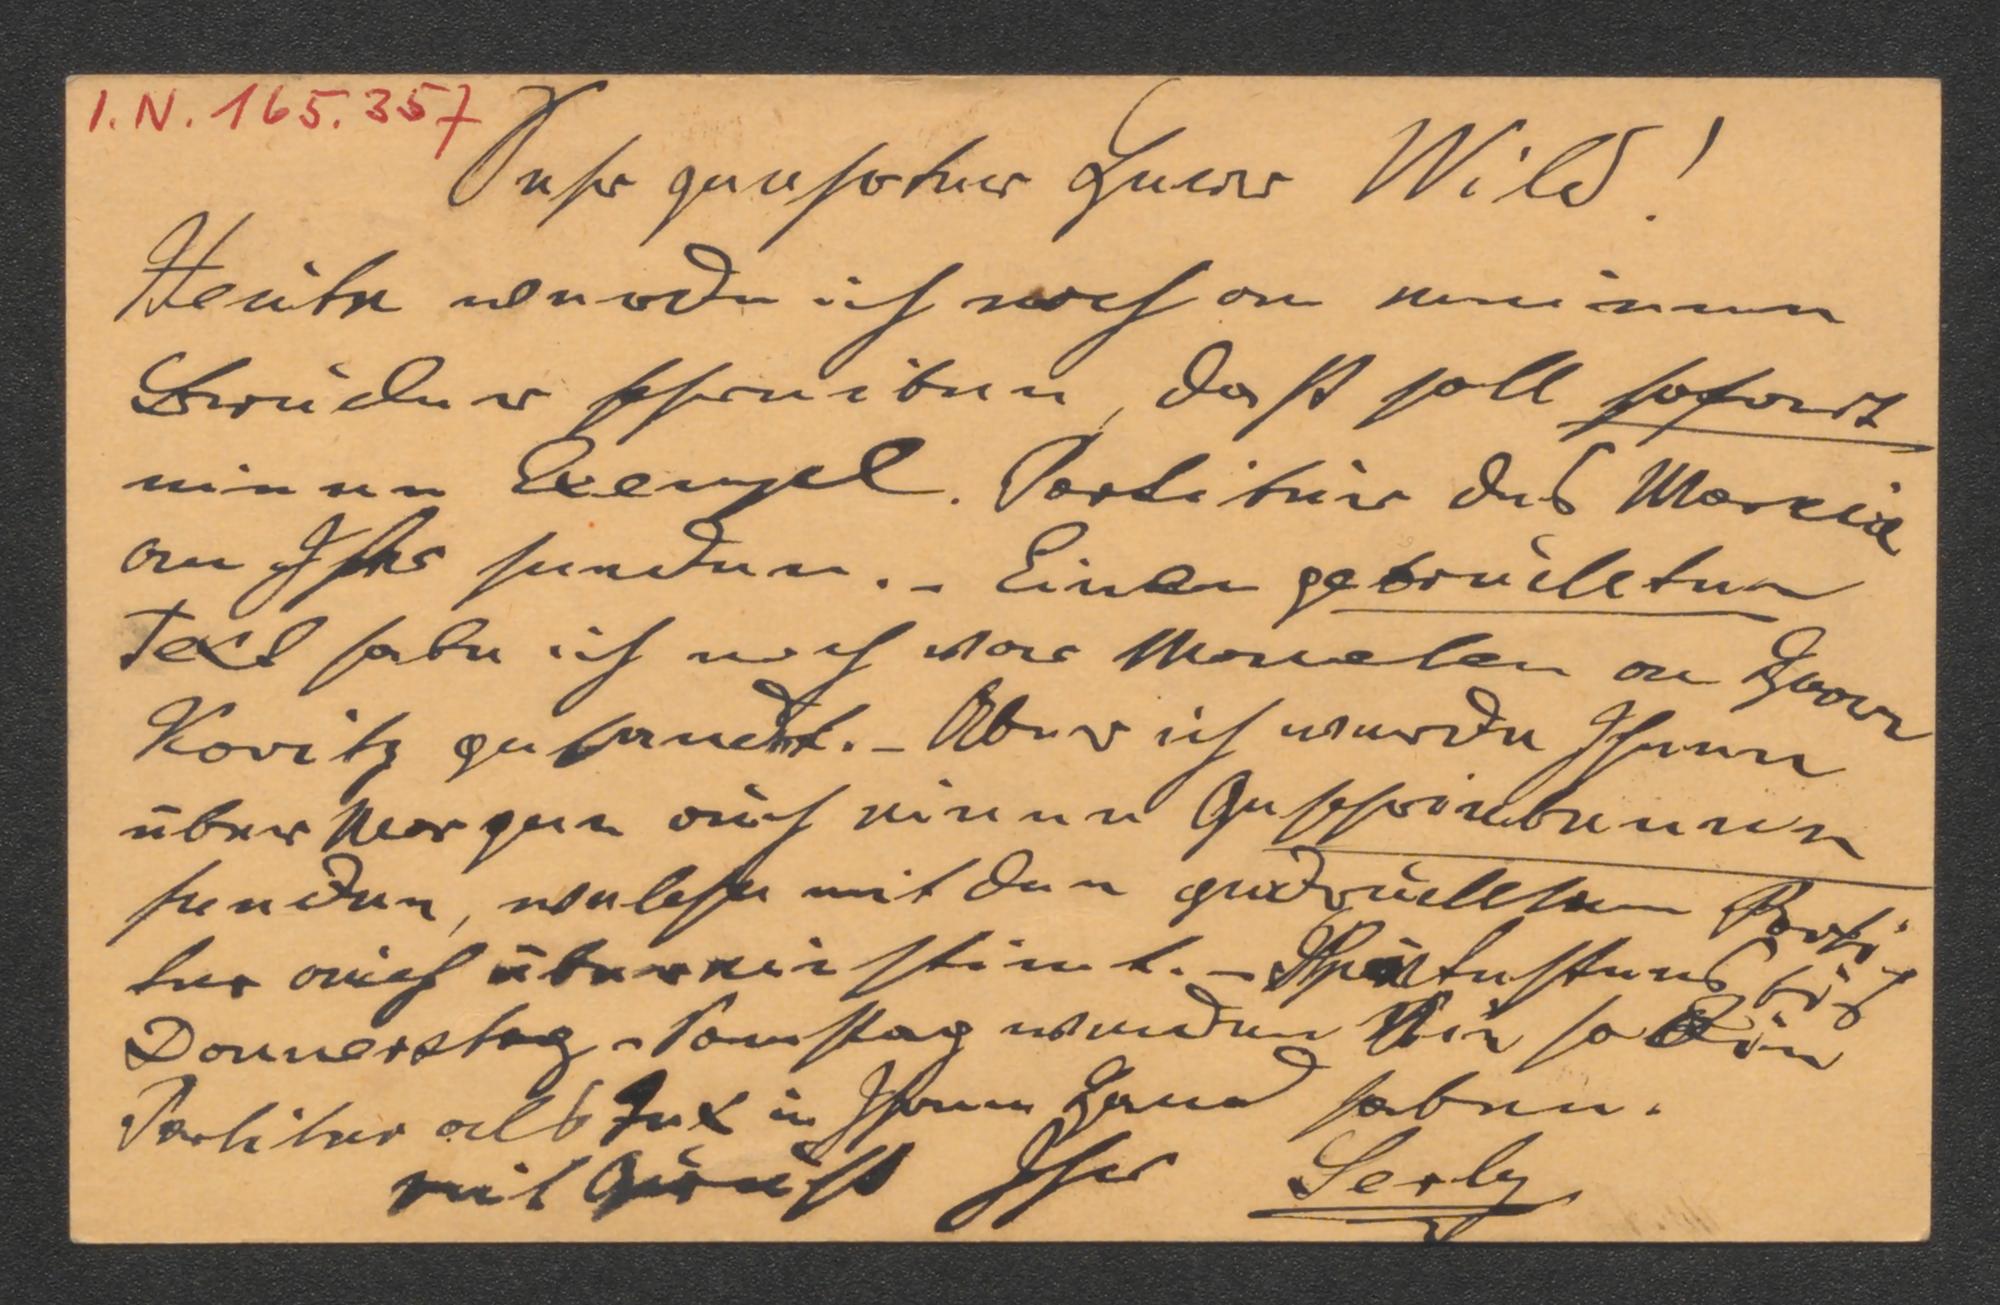 I.N. 165.357
Sehr geehrter Herr Wild!
Heute werde ich noch an meinen
Bruder schreiben, daß soll sofort
einen Exempl. Partitur des
an Ihr senden. – Einen gedruckten
Text habe ich noch vor Monaten an Herrn
Kovitz gesandt. – Aber ich werde Ihnen
über Morgen auch einen Geschriebenen
senden, welche mit den gedruckten Parti-
tur auch übereinstimt. – Spätestens bis
Donnerstag – Samstag werden Sie so
Partitur als Text in Ihren Hand haben.
mit Gruß Ihr Serly